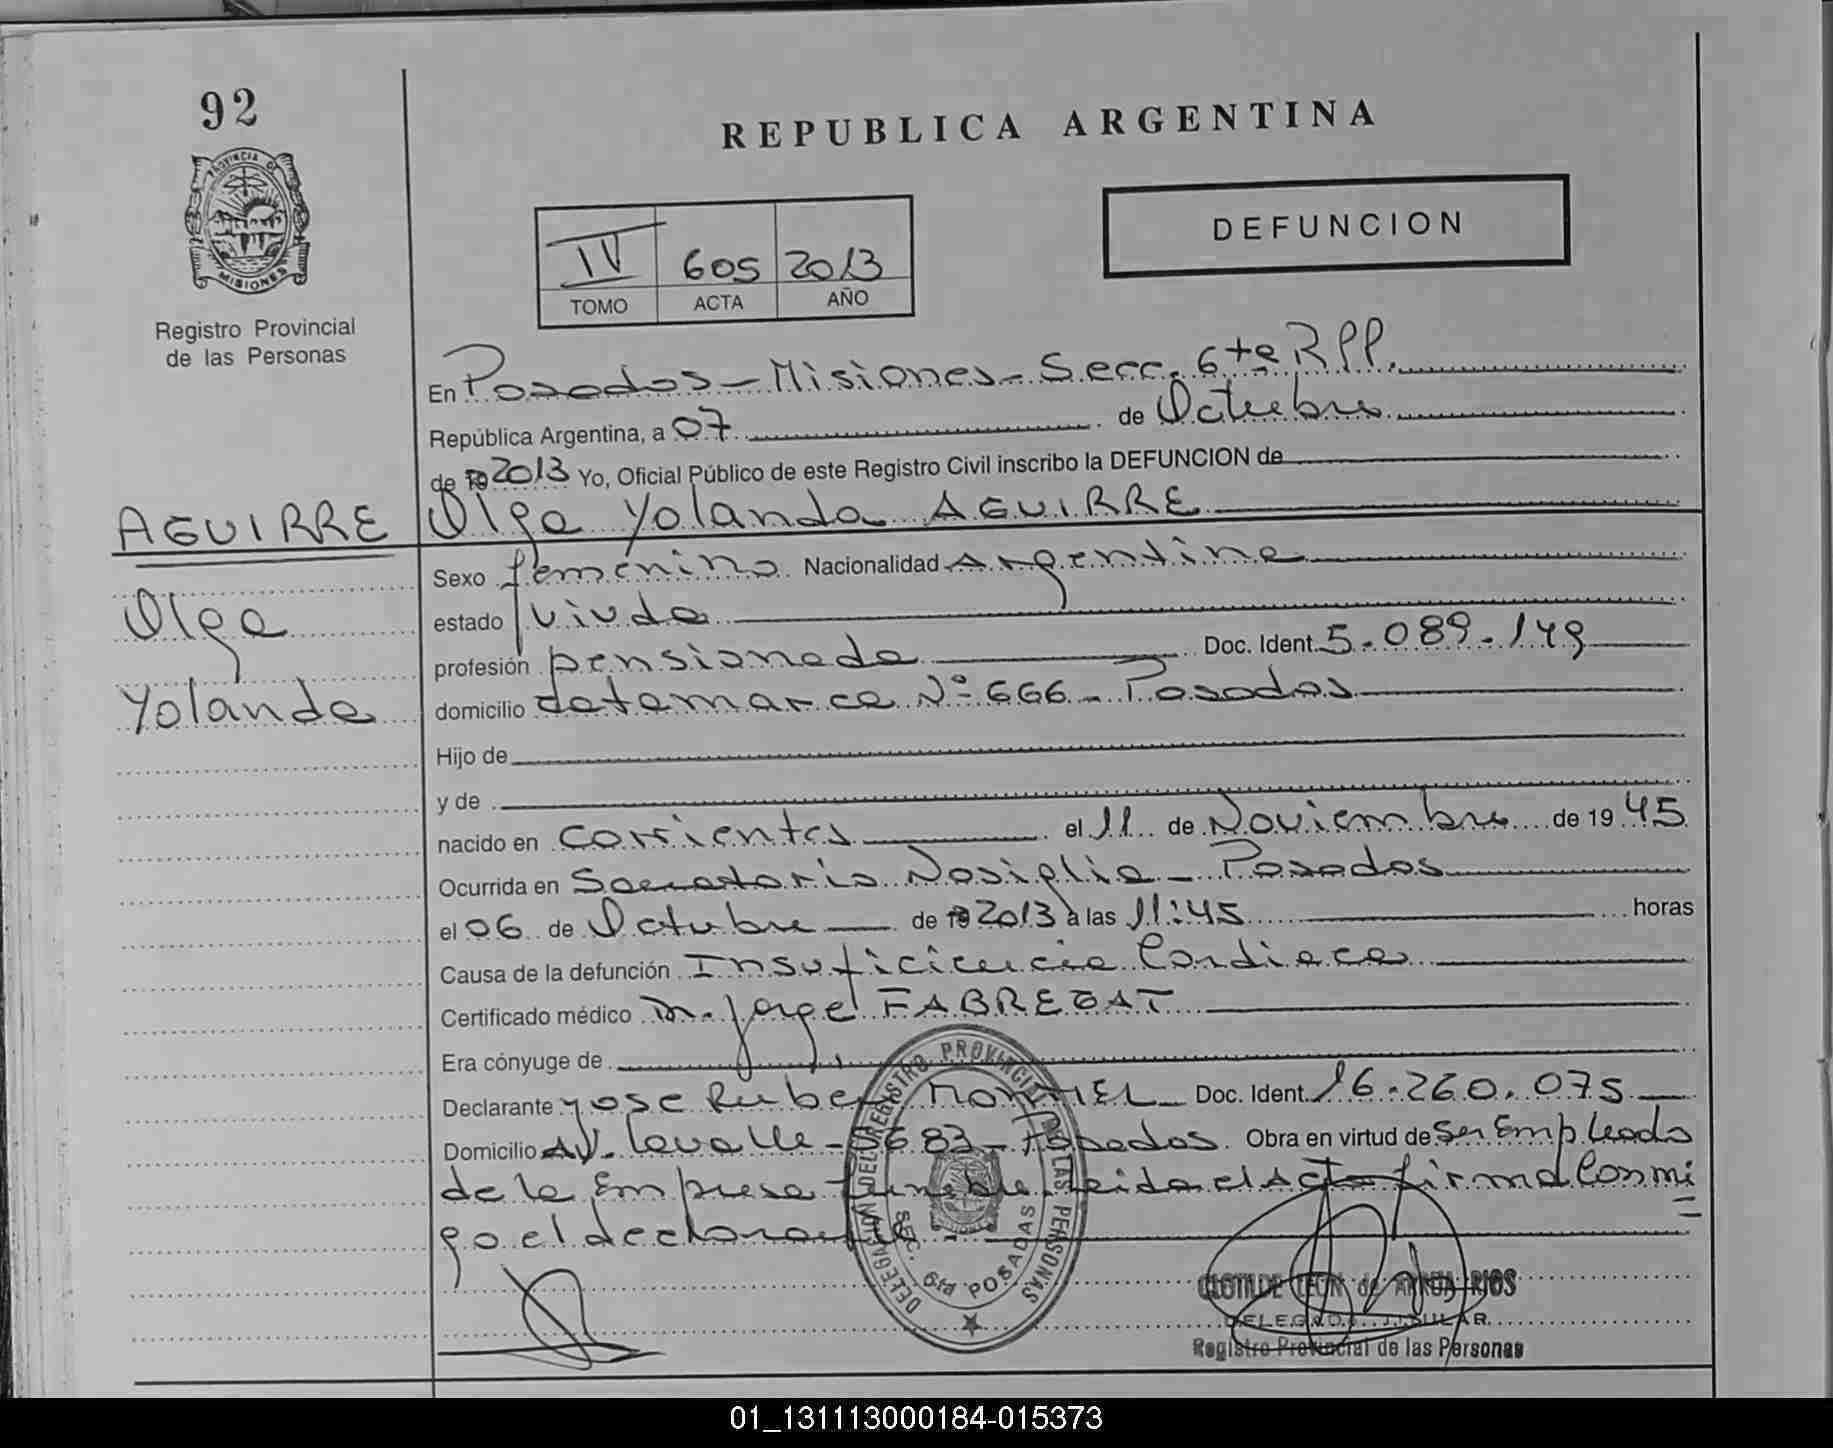 92
REPUBLICA ARGENTINA
PROVINCIA DE
MISIONES
Registro Provincial
de las Personas
DEFUNCION
IV 605 2013
TOMO ACTA AÑO
En Posadas - Misiones - Secc. 6ta R.P.P.
República Argentina, a 07 de Octubre
de 19 2013 Yo, Oficial Público de este Registro Civil inscribo la DEFUNCION de
AGUIRRE Olga Yolanda AGUIRRE
Olga
Yolanda
Sexo femenino Nacionalidad Argentina
estado viuda
profesión pensionada Doc. Ident. 5.089.149
domicilio Catamarca Nº 666 - Posadas
Hijo de
y de
nacido en Corrientes el 11 de Noviembre de 19 45
Ocurrida en Sanatorio Nosiglia - Posadas
el 06 de Octubre de 19 2013 a las 11:45 horas
Causa de la defunción Insuficiencia Cardiaca
Certificado médico Dr. Jorge FABREGAT
Era cónyuge de
Declarante Jose Ruben MONTIEL Doc. Ident. 16.260.075
Domicilio AV. Lavalle - 683 - Posadas. Obra en virtud de Ser Empleado
de la Empresa Funebre. Leida el Acta firma Conmi
go el declarante.
DELEGACION DEL REGISTRO PROVINCIAL DE LAS PERSONAS
SEC. 6ta POSADAS
CLOTILDE LEON de RIOS
DELEGADA TITULAR
Registro Provincial de las Personas
01_131113000184-015373